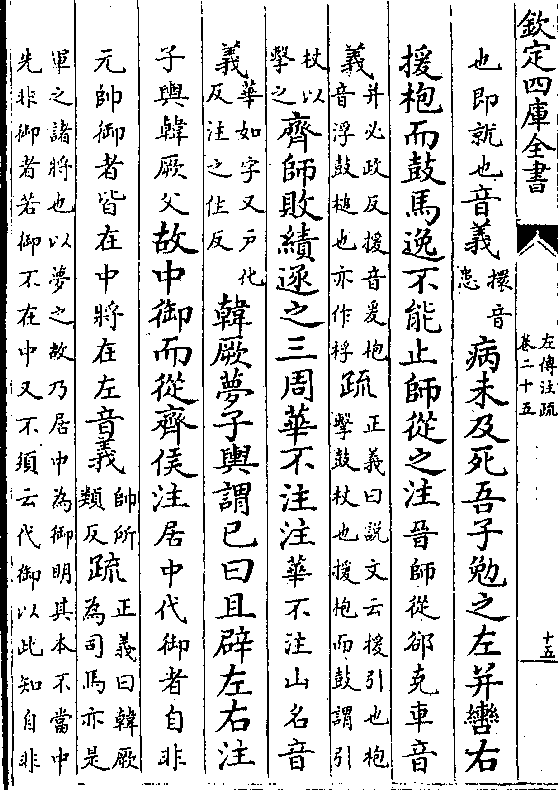 欽定四庫全書
左傳注疏
卷二十五
十五
也即就也音義擐音
患
病未及死吾子勉之左并轡右
援枹而鼓馬逸不能止師從之注晉師從郤克車音
義并必政反援音爰枹
音浮鼓槌也亦作桴
疏正義曰說文云援引也枹
擊鼓杖也援枹而鼓謂引
杖以
擊之
齊師敗績逐之三周華不注注華不注山名音
義華如字又戸化
反注之住反
韓厥夢子輿謂已曰且辟左右注
子輿韓厥父故中御而從齊侯注居中代御者自非
元帥御者皆在中將在左音義帥所
類反
疏正義曰韓厥
為司馬亦是
軍之諸將也以夢之故乃居中為御明其本不當中
先非御者若御不在中又不須云代御以此知自非